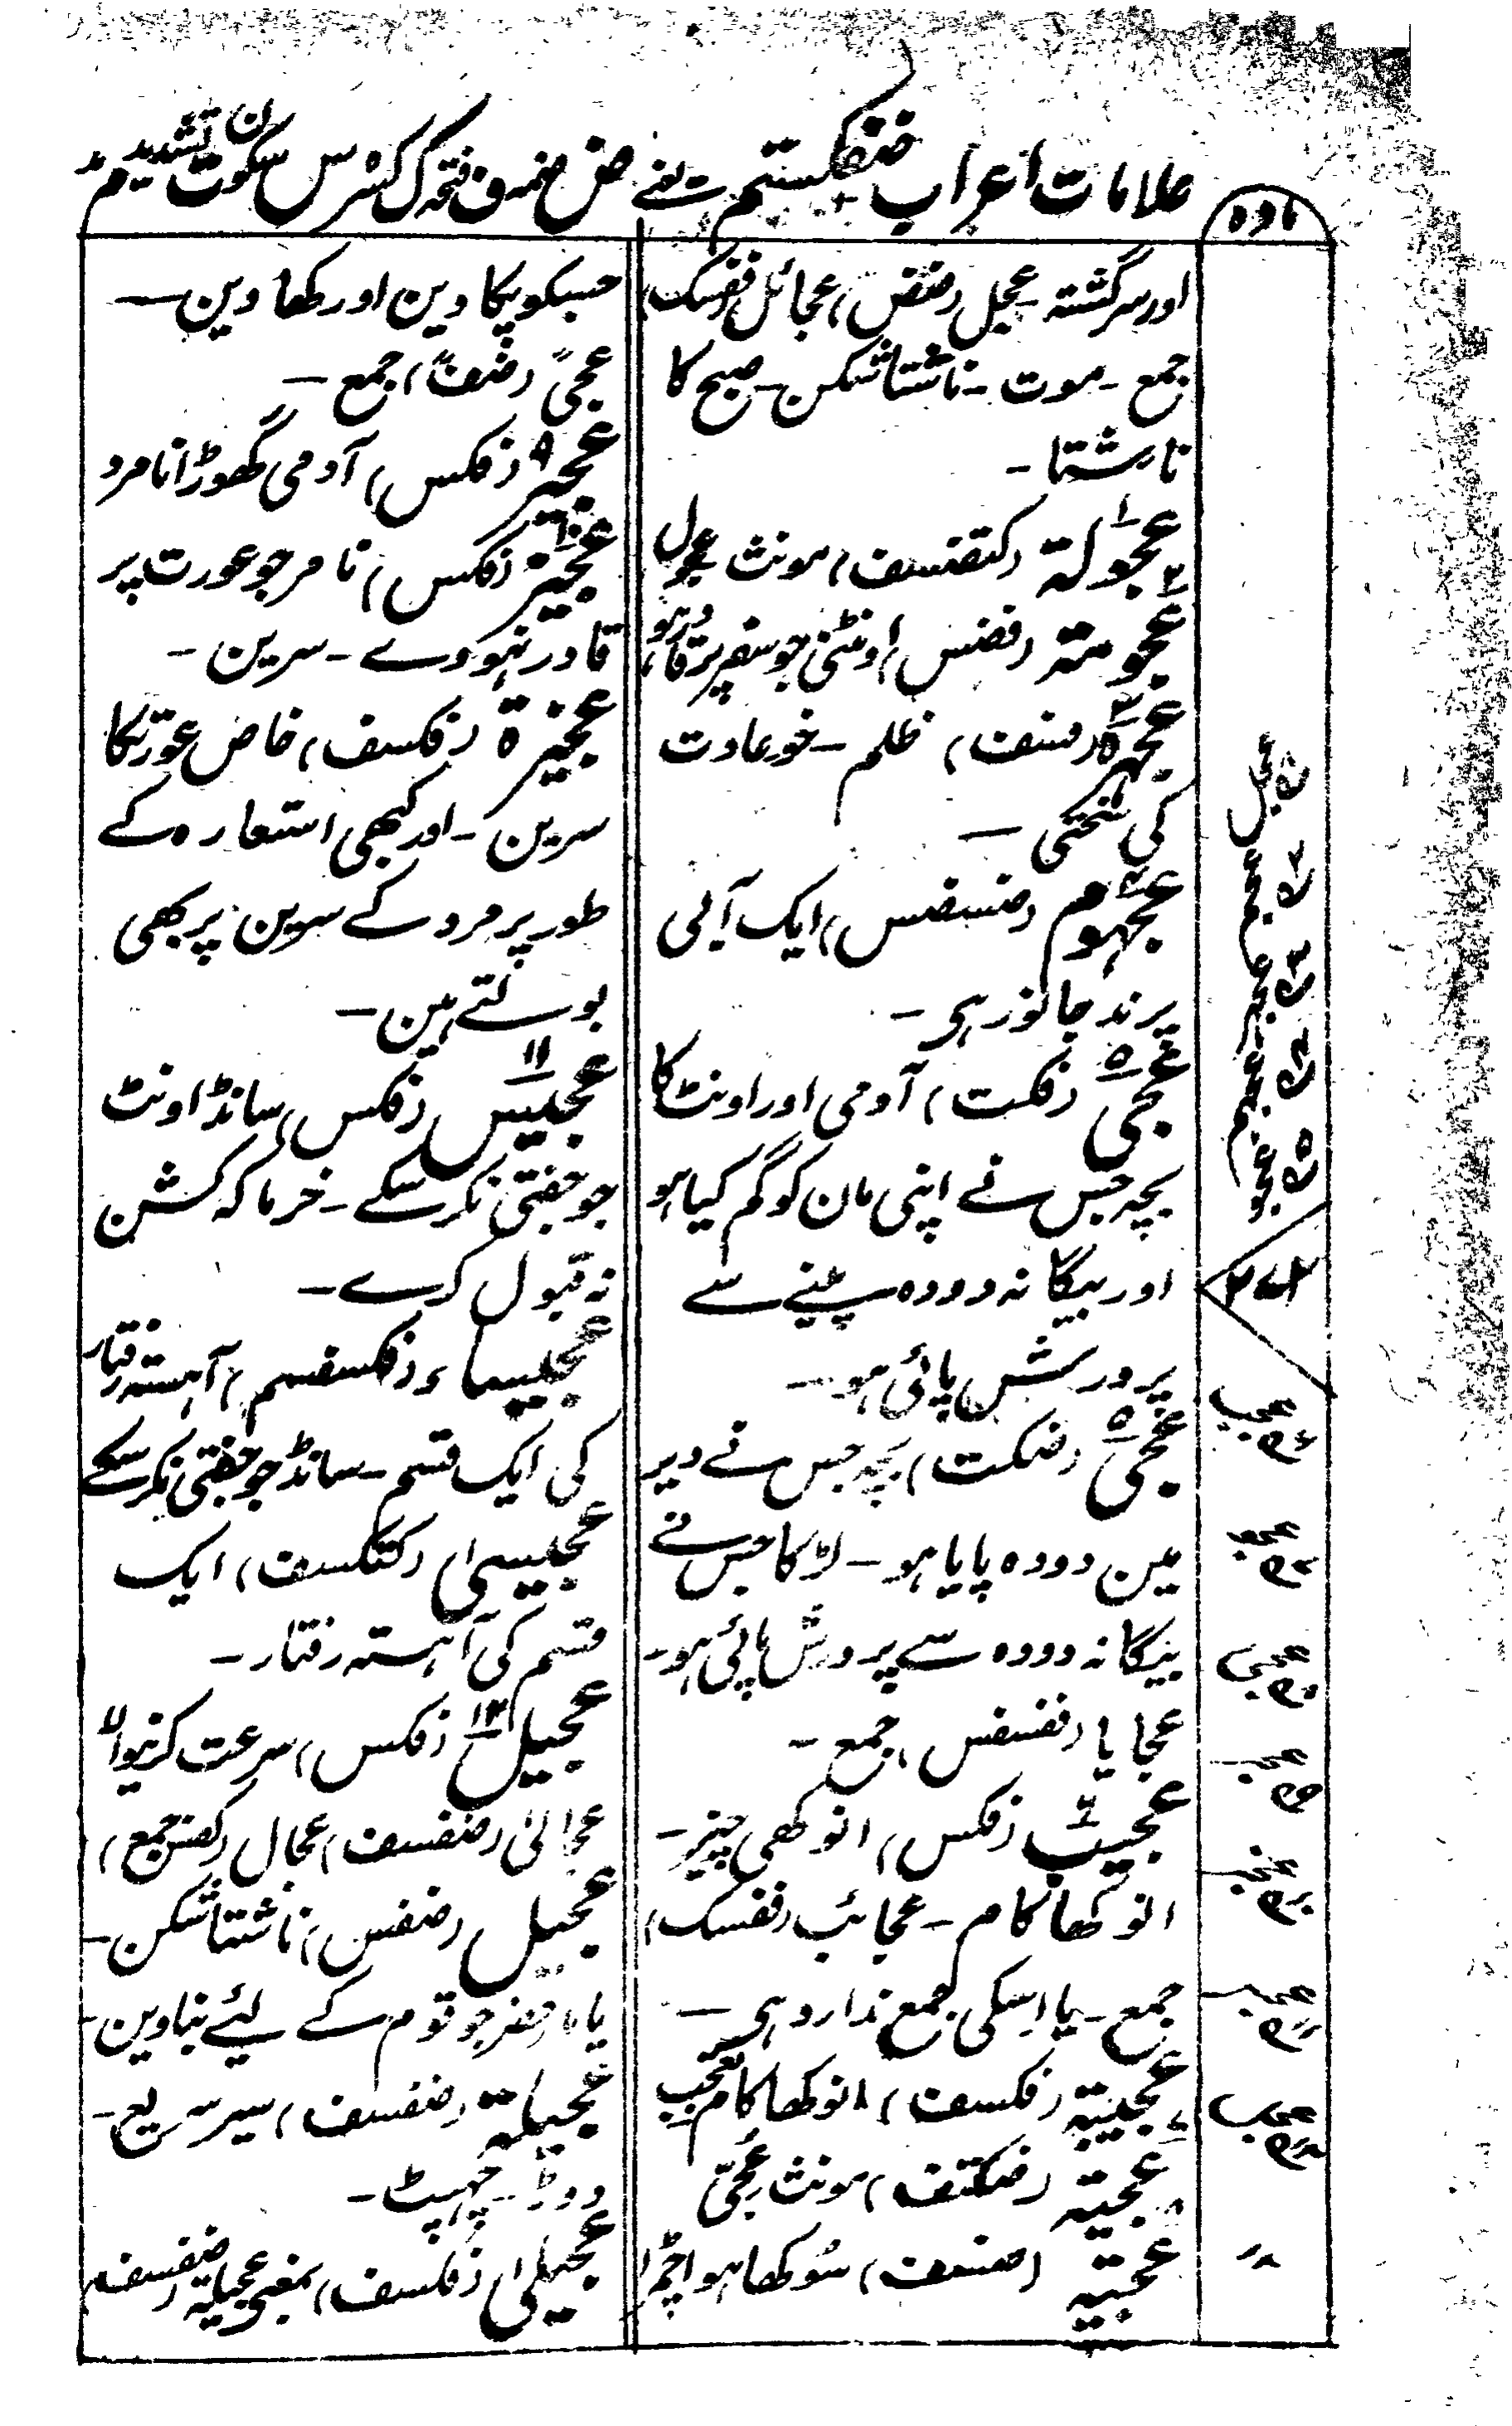 علامات اعراب ضفکستم یعنے ض ضمہ ف فتحہ ک کسرہ س سکون ت تشدید م مد
مادہ
اور سرگشتہ ۔ عجیل (ضفس) عجائل (ففسک)
جمع ۔ موت ۔ ناشتا شکن ۔ صبح کا
ناشتا ۔
عجولة (کتفسف) مونث عجول
عجومتہ (فضس) اونٹنی جو سفر پر قادر ہو
عجہرة (فسف) ظلم ۔ خو عادت
کی سختی ۔
عجہوم (ضسضس) ایک آبی
پرند جانور ہی ۔
عجی (فکت) آدمی اور اونٹ کا
بچہ جس نے اپنی مان کو گم کیا ہو
اور بیگانہ دودہ پینے سے
پرورش پائی ہو ۔
عجی (ضکت) بچہ جس نے دیر
مین دودہ پایا ہو ۔ لڑکا جس نے
بیگانہ دودہ سے پرورش پائی ہو ۔
عجایا (ففسفس) جمع ۔
عجیب (فکس) انوکھی چیز ۔
انوکھا کام ۔ عجائب (ففسک)
جمع ۔ یا اسکی جمع ندارد ہی ۔
عجیبة (فکسف) انوکھا کام تعجب
عجیتہ (ضکتف) مونث عجی
عجیتہ (ضسف) سوکھا ہوا چمڑا
جسکو پکاوین اور کھاوین ۔
عجی (ضف) جمع ۔
عجیر ۹ (فکس) آدمی گھوڑا نامرد
عجیز ۱۰ (فکس) نامر جو عورت پر
قادر نہووے ۔ سرین ۔
عجیزة (فکسف) خاص عورتکا
سرین ۔ اور کبھی استعارہ کے
طور پر مرد کے سرین پر بھی
بولتے ہین ۔
عجیس ۱۱ (فکس) سانڈ اونٹ
جو جفتی نکر سکے ۔ خرما کہ گشن
نہ قبول کرے ۔
عجیساء (فکسفسم) آہستہ رفتار
کی ایک قسم ۔ سانڈ جو جفتی نکر سکے
عجیسی (کتکسف) ایک
قسم کی آہستہ رفتار ۔
عجیل ۱۲ (فکس) سرعت کرنیوالا
عجالی (ضفسف) عجال (کفس) جمع
عجیل (ضفس) ناشتا شکن ۔
یا ماحضر جو قوم کے لیئے بناوین ۔
عجیلة (ضفسف) سیر سریع ۔
دوڑ ۔ جہپٹ ۔
عجیلی (فکسف) بمعنی عجیلة (ضفسف)
عجل
عجم
عجہر
عجہم
عجو
عجب